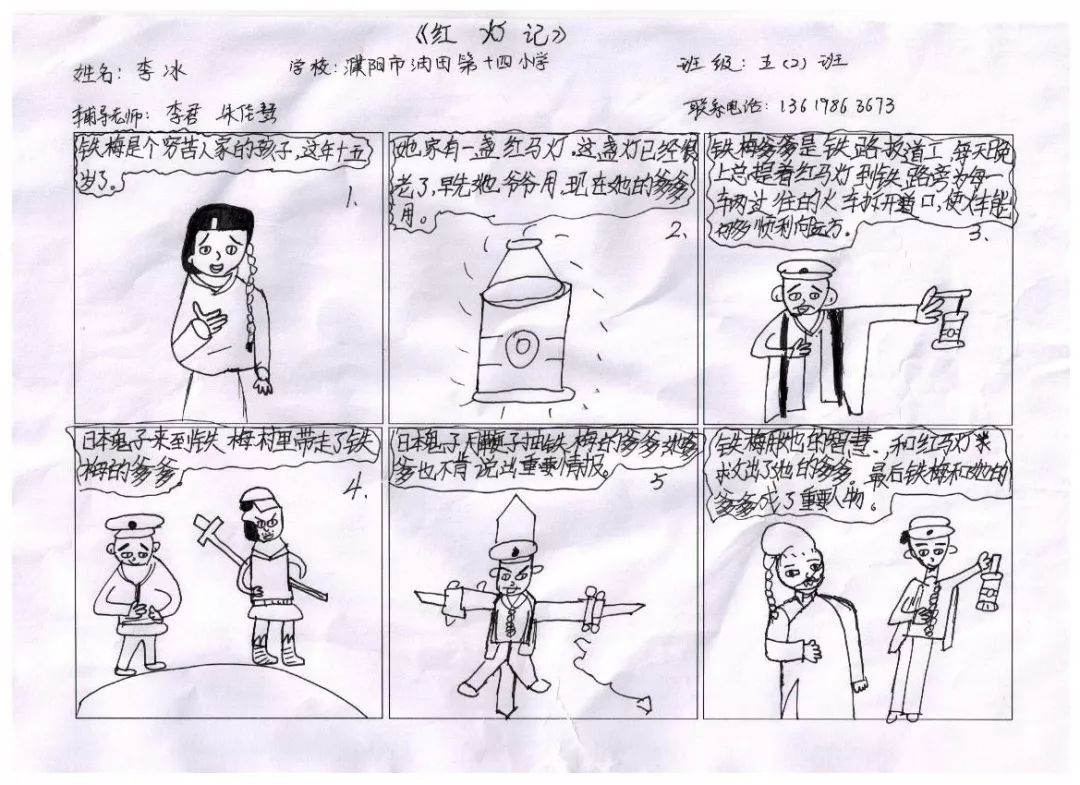 《红灯记》
姓名：李冰 学校：濮阳市油田第十四小学 班级：五(2)班
辅导老师：李君 朱传慧 联系电话：13619863673
铁梅是个穷苦人家的孩子，这年十五
岁了。
1.
她家有一盏红马灯，这盏灯已经很
老了，早先她爷爷用，现在她的爹爹
用。
2、
铁梅爹爹是铁路扳道工，每天晚
上总提着红马灯到铁路旁为每一
车两过往的火车扳开道口，使火车能
够顺利向远方。
3、
日本鬼子来到铁梅村里带走了铁
梅的爹爹。
4、
日本鬼子用鞭子抽铁梅的爹爹她爹
爹也不肯说出重要情报。
5
铁梅用她的智慧、和红马灯求
求出了她的爹爹。最后铁梅和她的
爹爹成了重要人物。